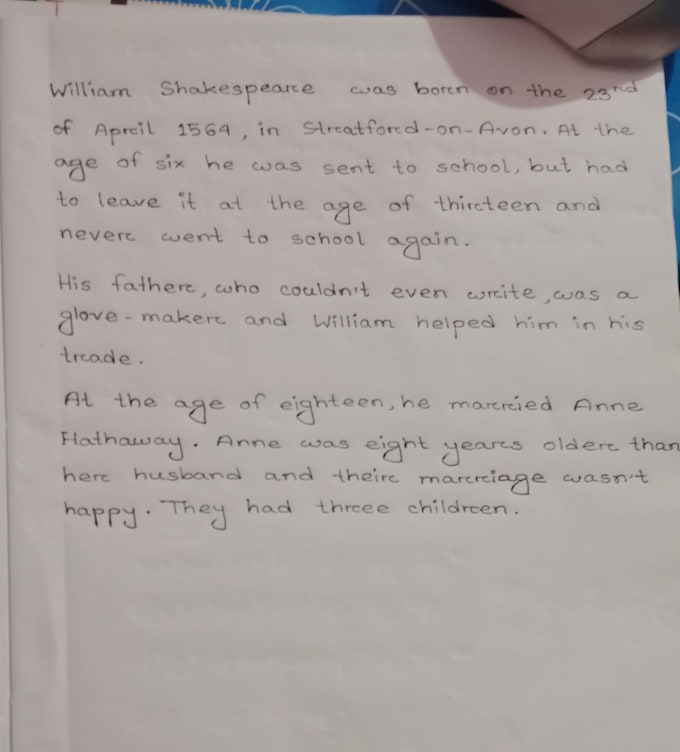 William Shakespeare was born on the 23rd
of April 1564, in Stratford-on-Avon. At the
age of six he was sent to school, but had
to leave it at the age of thirteen and
never went to school again.
His father, who couldn't even write, was a
glove-maker and William helped him in his
trade.
At the age of eighteen, he married Anne
Hathaway. Anne was eight years older than
her husband and their marriage wasn't
happy. They had three children.